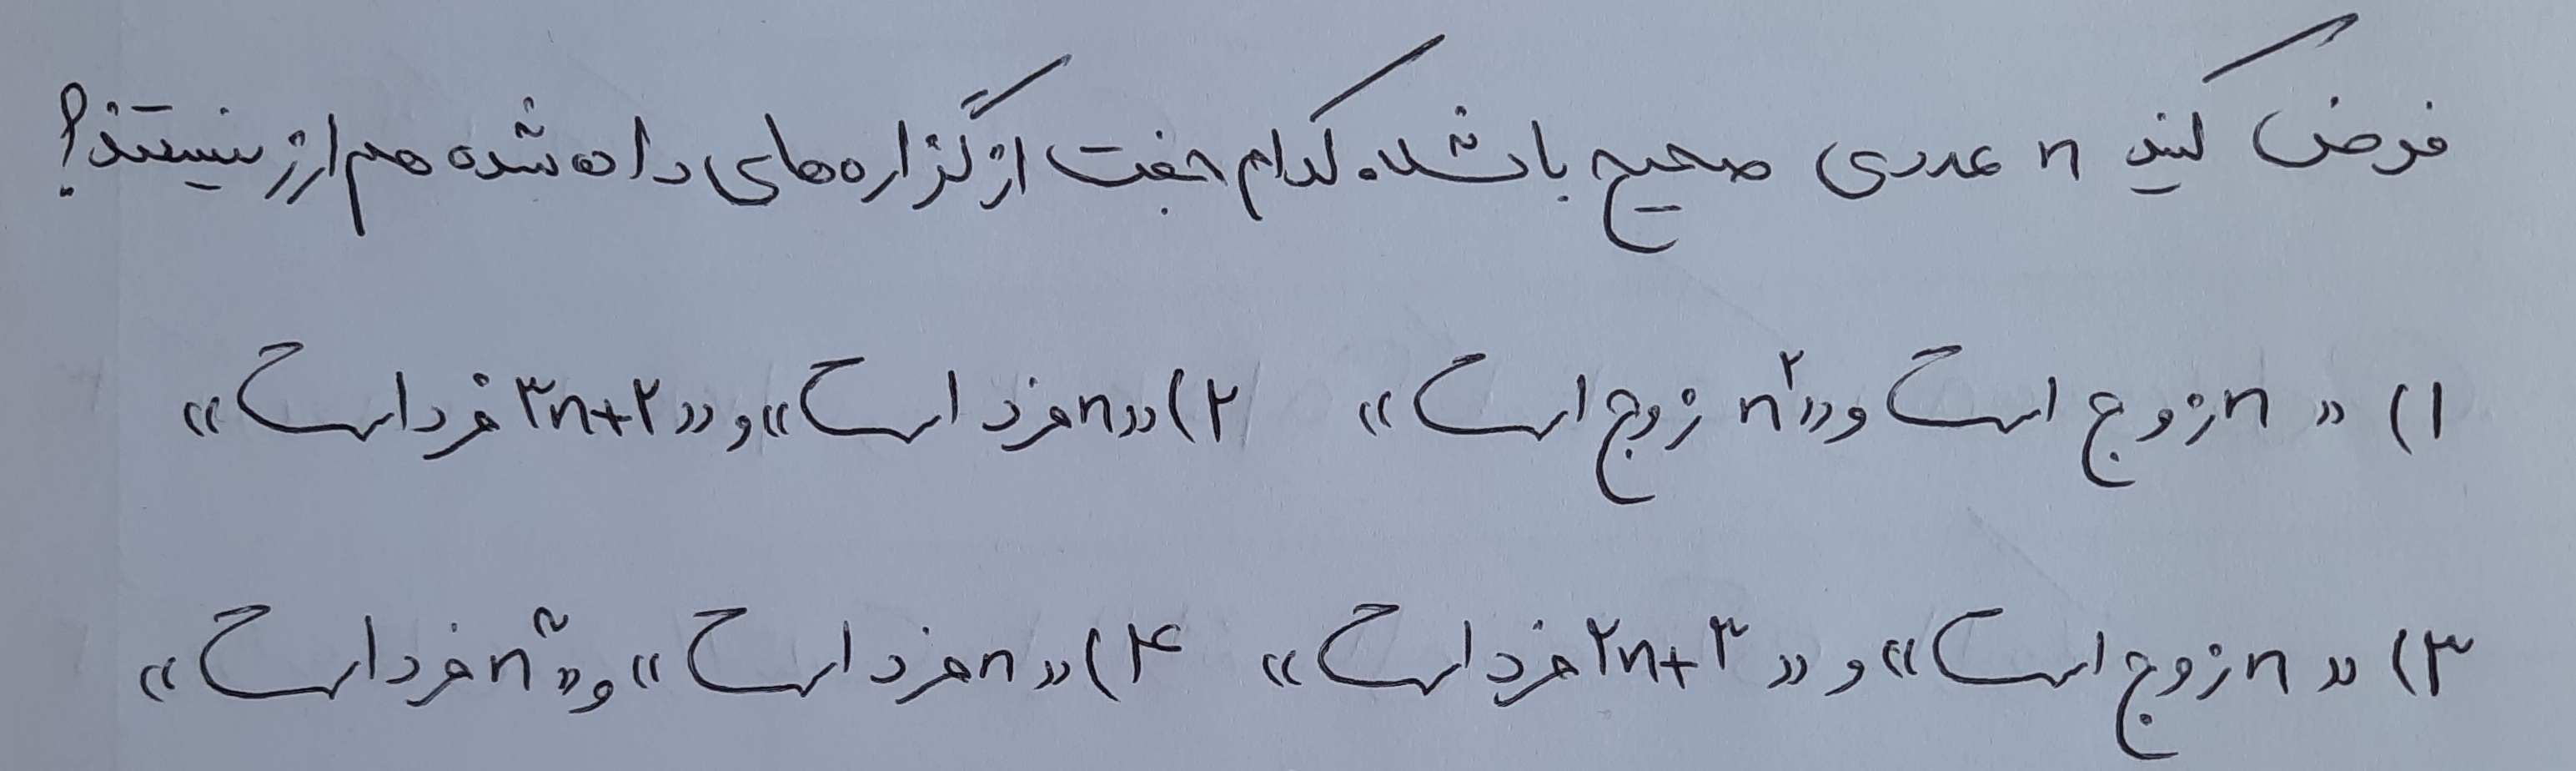 فرض کنید n عددی صحیح باشد. کدام جفت از گزاره‌های داده شده هم ارز نیستند؟
۱) «n زوج است و «n² زوج است» ۲) «n فرد است» و «۳n+۲ فرد است»
۳) «n زوج است» و «۲n+۳ فرد است» ۴) «n فرد است» و «n³ فرد است»